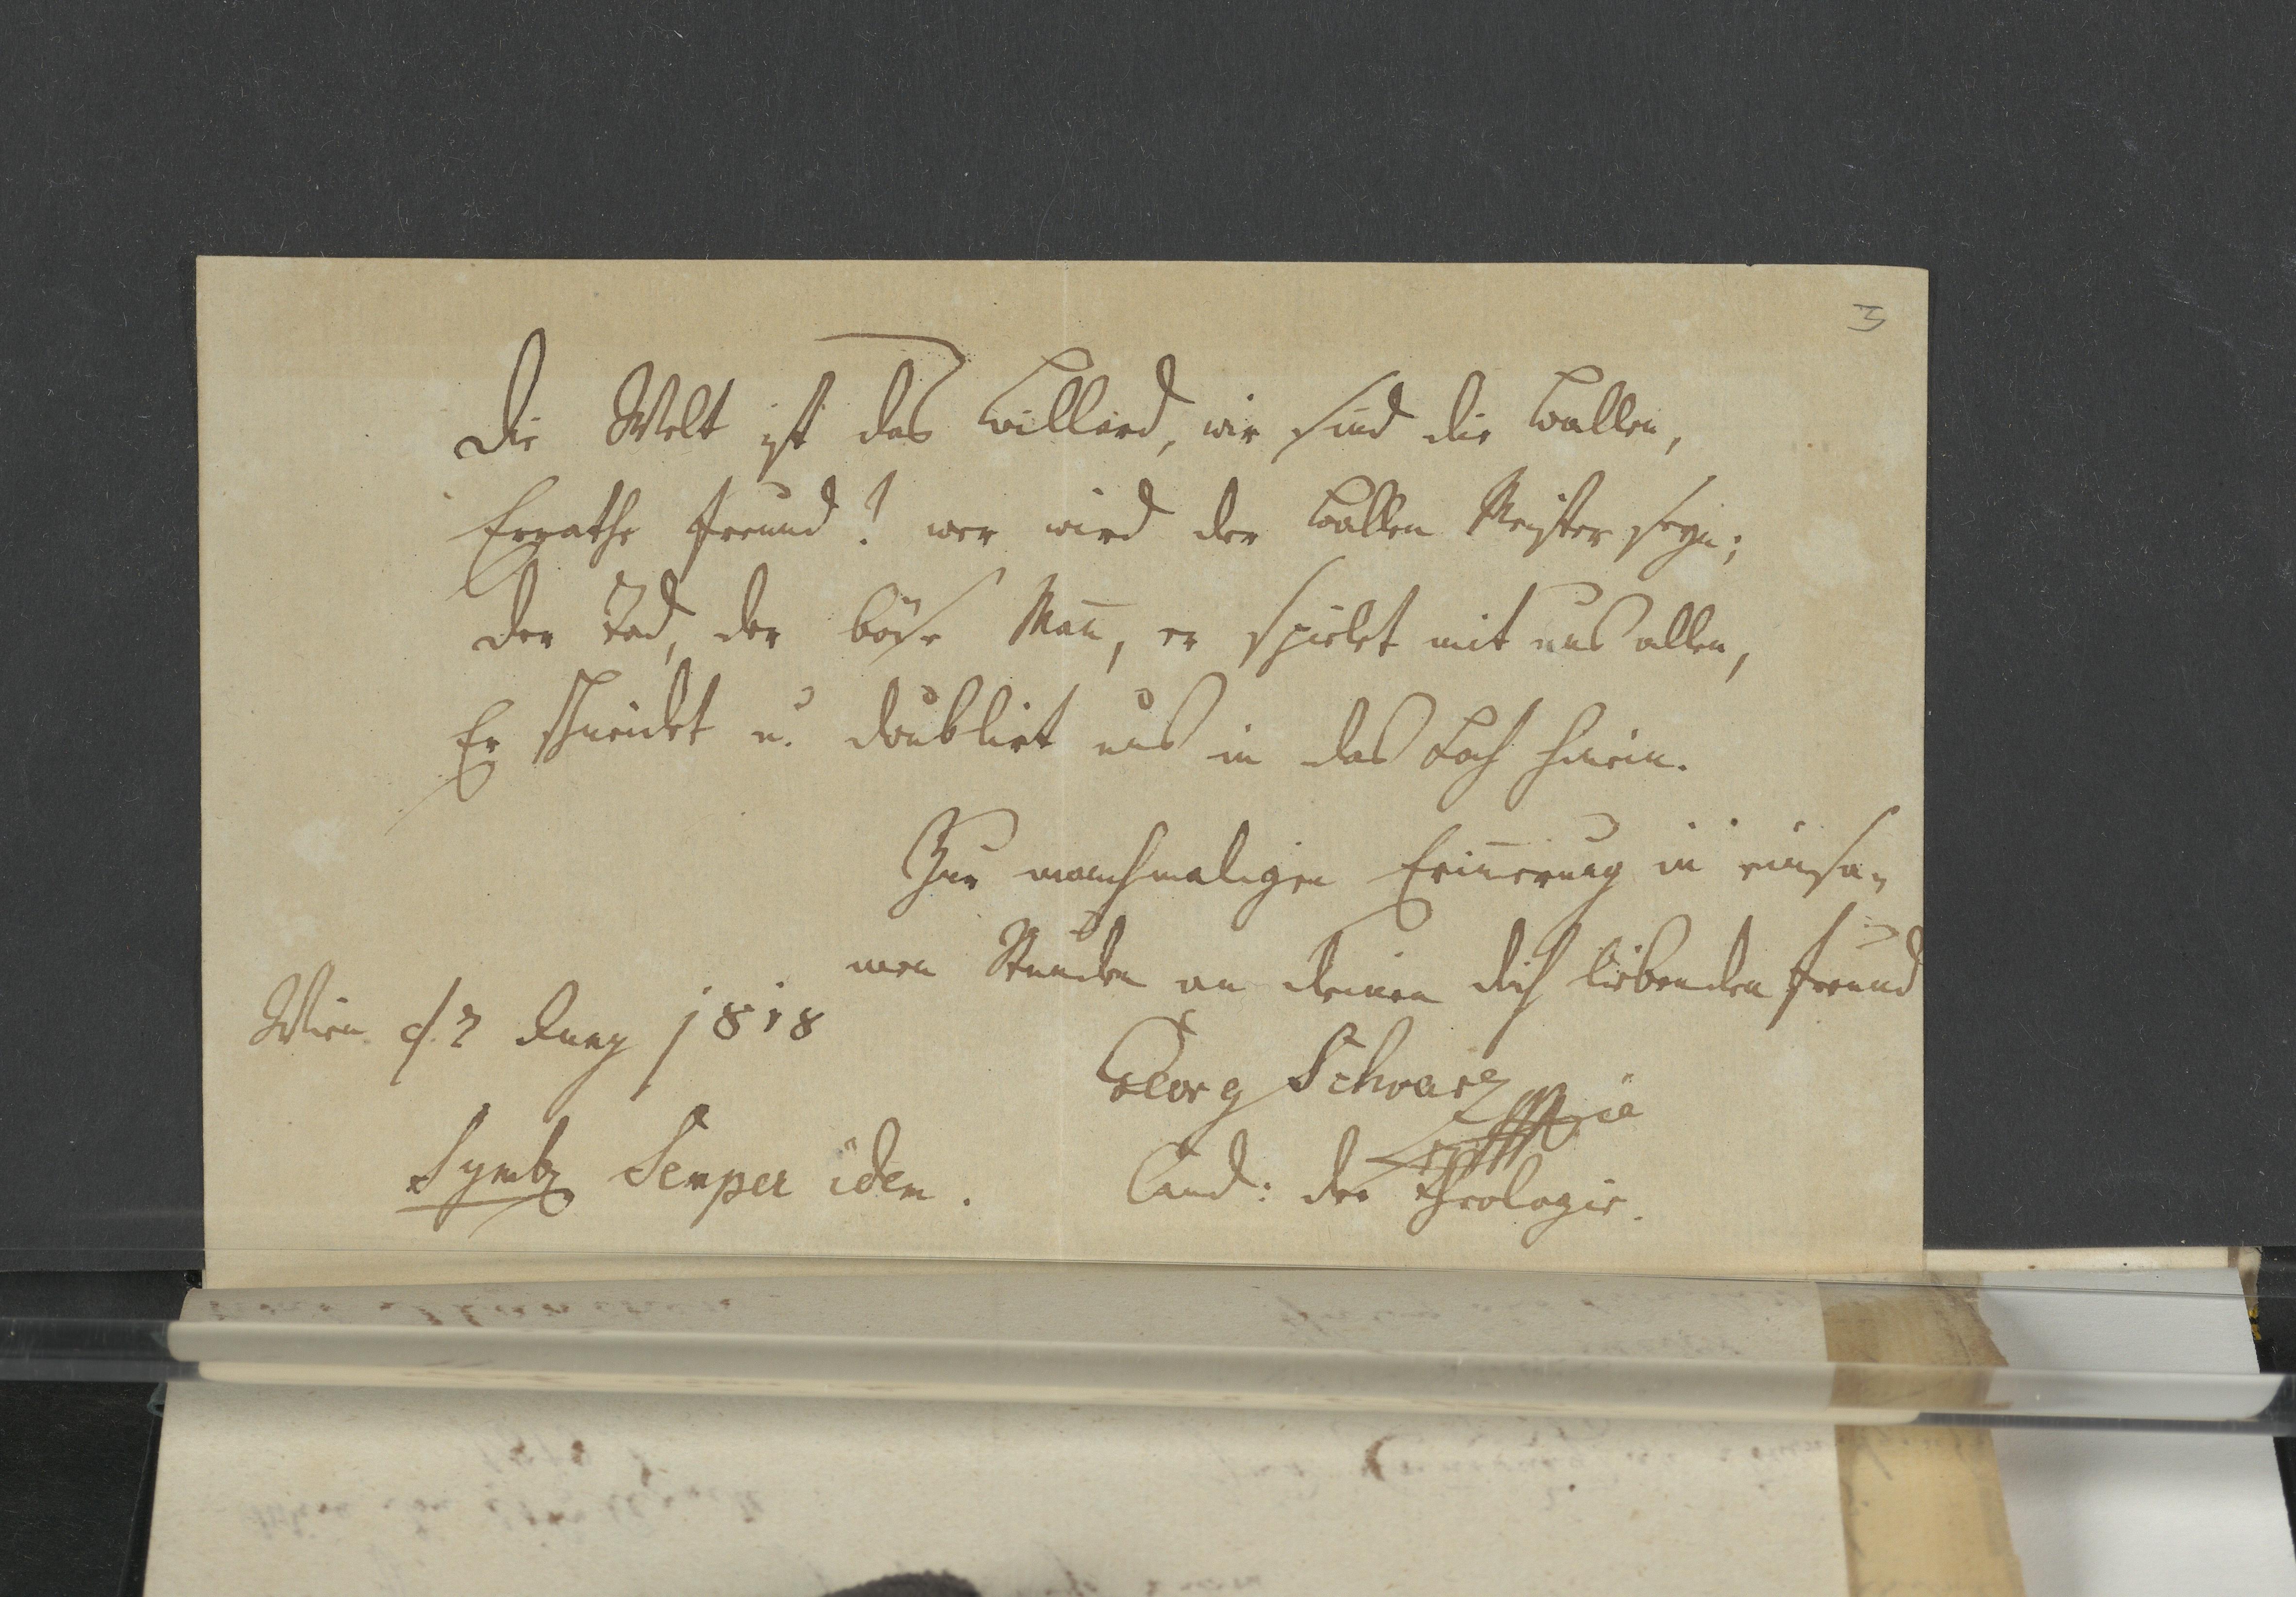 Die Welt ist das Billard, wir sind die Ballen,
Errathe Freund! wer wird der Ballen Meister seyn;
Der Tod, der böse Mañ, er spielet mit uns allen,
Er schneidet u. doublirt uns in das Loch hinein.
Zur manchmaligen Eriñerung in einsa-
men Stunden an deinen dich liebenden Freund
Wien d. 7 Juny 1818
Georg Schwarz
Symb. Semper idem.
Cand: der Theologie.